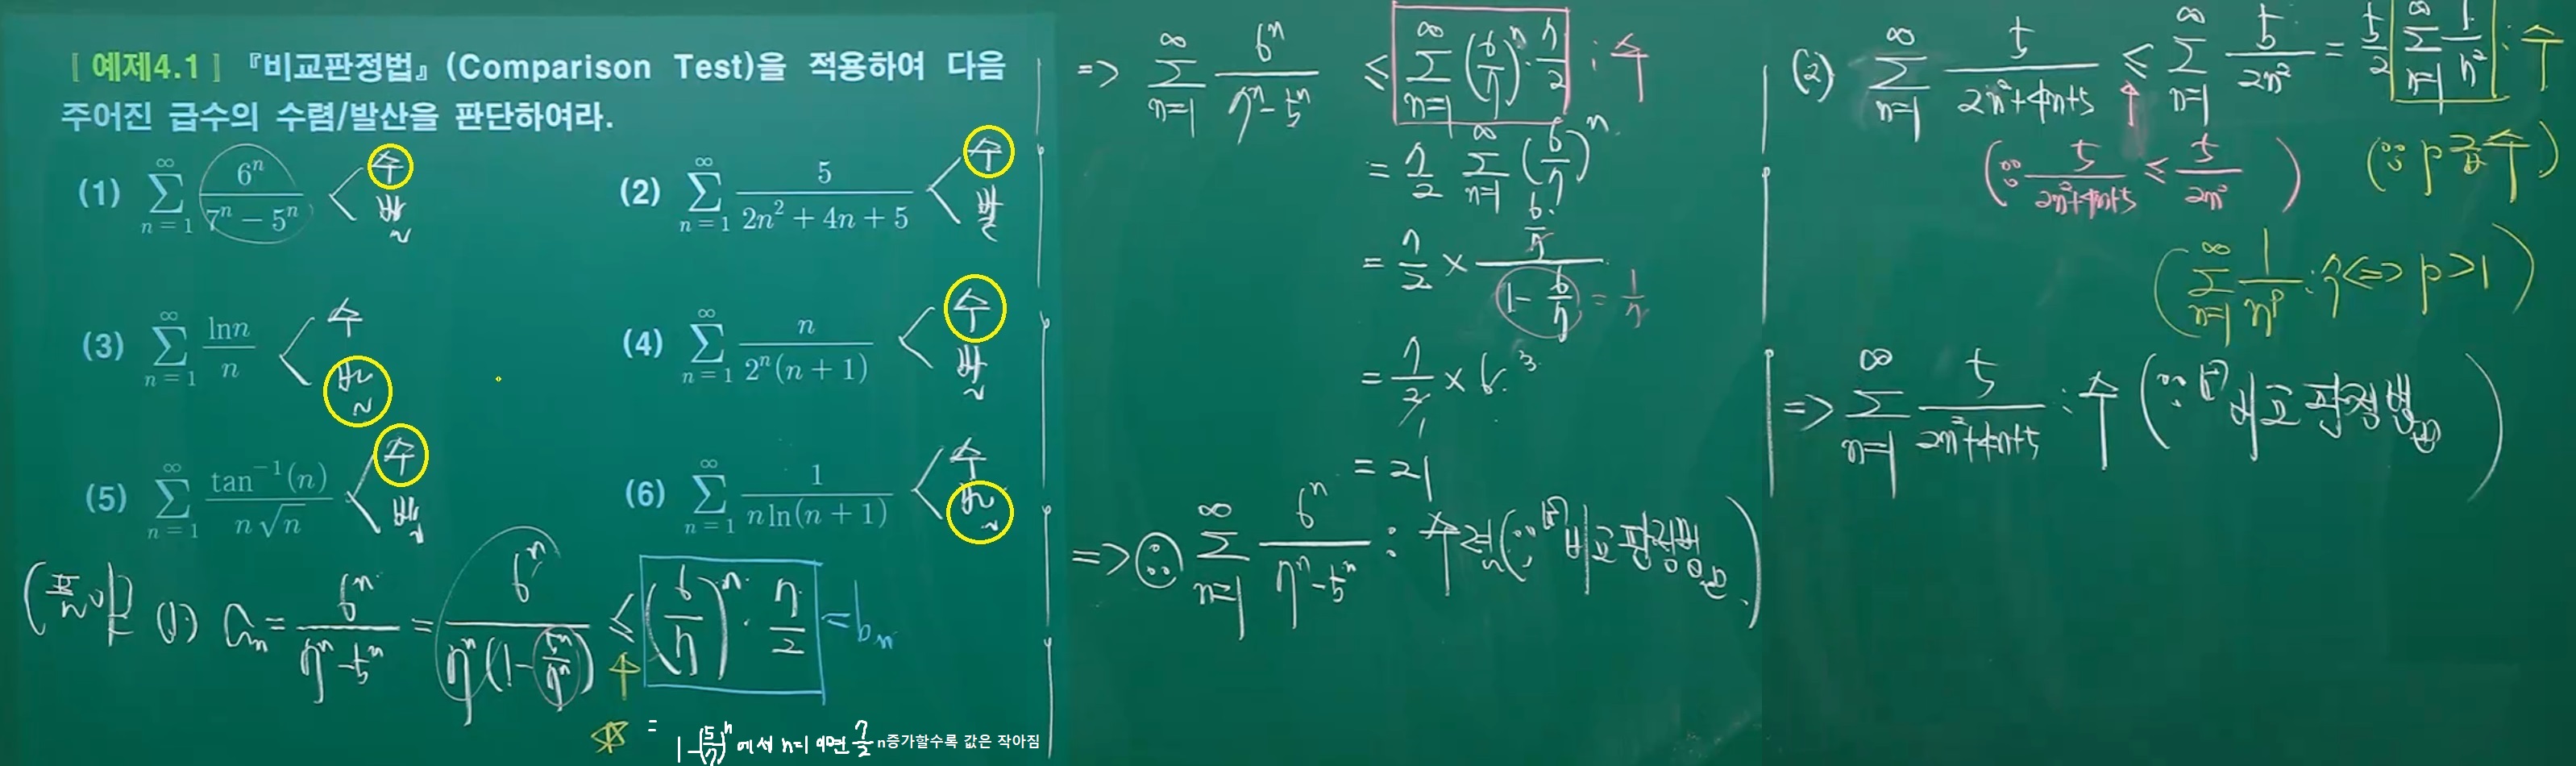 [예제4.1] 『비교판정법』(Comparison Test)을 적용하여 다음
주어진 급수의 수렴/발산을 판단하여라.
(1) ∑_{n=1}^{∞} 6^n/(7^n − 5^n) < 수 발
(2) ∑_{n=1}^{∞} 5/(2n² + 4n + 5) < 수 발
(3) ∑_{n=1}^{∞} ln n/n < 수 발
(4) ∑_{n=1}^{∞} n/(2^n(n + 1)) < 수 발
(5) ∑_{n=1}^{∞} tan⁻¹(n)/(n√n) < 수 발
(6) ∑_{n=1}^{∞} 1/(n ln(n + 1)) < 수 발
(풀이) (1) a_n = 6^n/(7^n − 5^n) = 6^n/(7^n(1 − 5^n/7^n)) ≤ (6/7)^n · 7/2 = b_n
= 1−(5/7)^n 에서 n=1 이면 7/2 n증가할수록 값은 작아짐
=> ∑_{n=1}^{∞} 6^n/(7^n − 5^n) ≤ ∑_{n=1}^{∞} (6/7)^n · 7/2 : 수
= 7/2 ∑_{n=1}^{∞} (6/7)^n
= 7/2 × (6/7)/(1 − 6/7) = 1/7
= 7/2 × 6 3
1
= 21
=> ∴ ∑_{n=1}^{∞} 6^n/(7^n − 5^n) : 수렴 (∵ 비교판정법)
(2) ∑_{n=1}^{∞} 5/(2n²+4n+5) ≤ ∑_{n=1}^{∞} 5/(2n²) = 5/2 ∑_{n=1}^{∞} 1/n² : 수
(∵ 5/(2n²+4n+5) ≤ 5/(2n²))
(∵ p급수)
(∑_{n=1}^{∞} 1/n^p : 수 <=> p>1)
=> ∑_{n=1}^{∞} 5/(2n²+4n+5) : 수 (∵ 비교판정법)